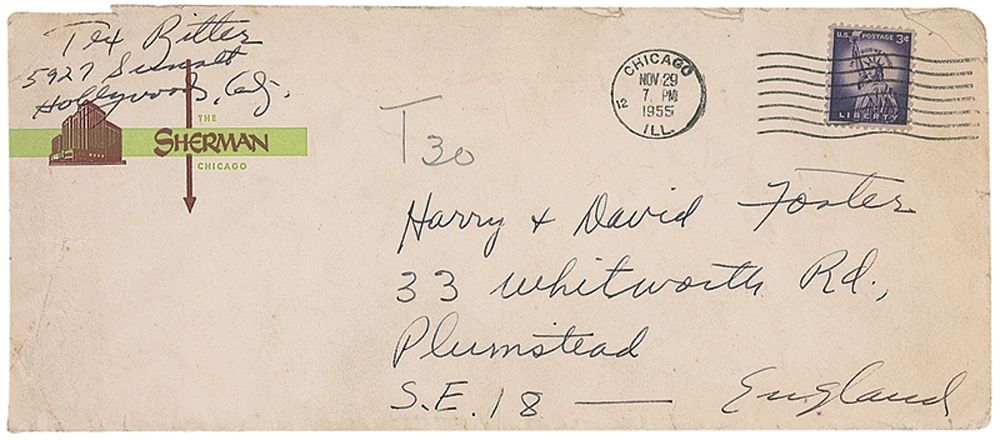 Tex Ritter
5927 Sunset
Hollywood, Cal.
THE
SHERMAN
CHICAGO
CHICAGO
NOV 29
7 PM
1955
12
ILL.
U.S. POSTAGE 3¢
LIBERTY
T 30
Harry + David Foster
33 Whitworth Rd.,
Plumstead
S.E. 18 — England